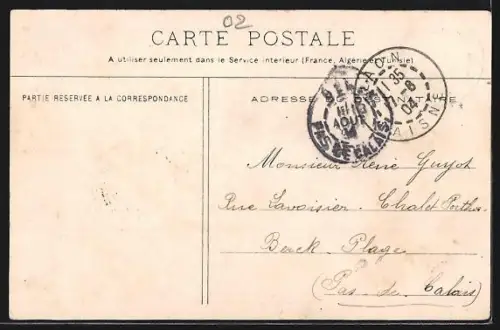 02
CARTE POSTALE
A utiliser seulement dans le Service intérieur (France, Algérie et Tunisie)
PARTIE RÉSERVÉE A LA CORRESPONDANCE
ADRESSE
LAON
11 35
7-8
04
AISNE
AOUT
PAS DE CALAIS
Monsieur René Guyot
Rue Lavoisier. Chalet
Berck-Plage
(Pas-de-Calais)